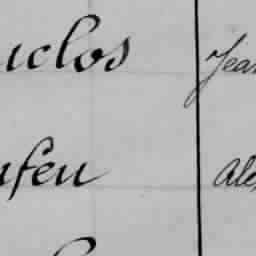 uclos Jean
ufeu Alex